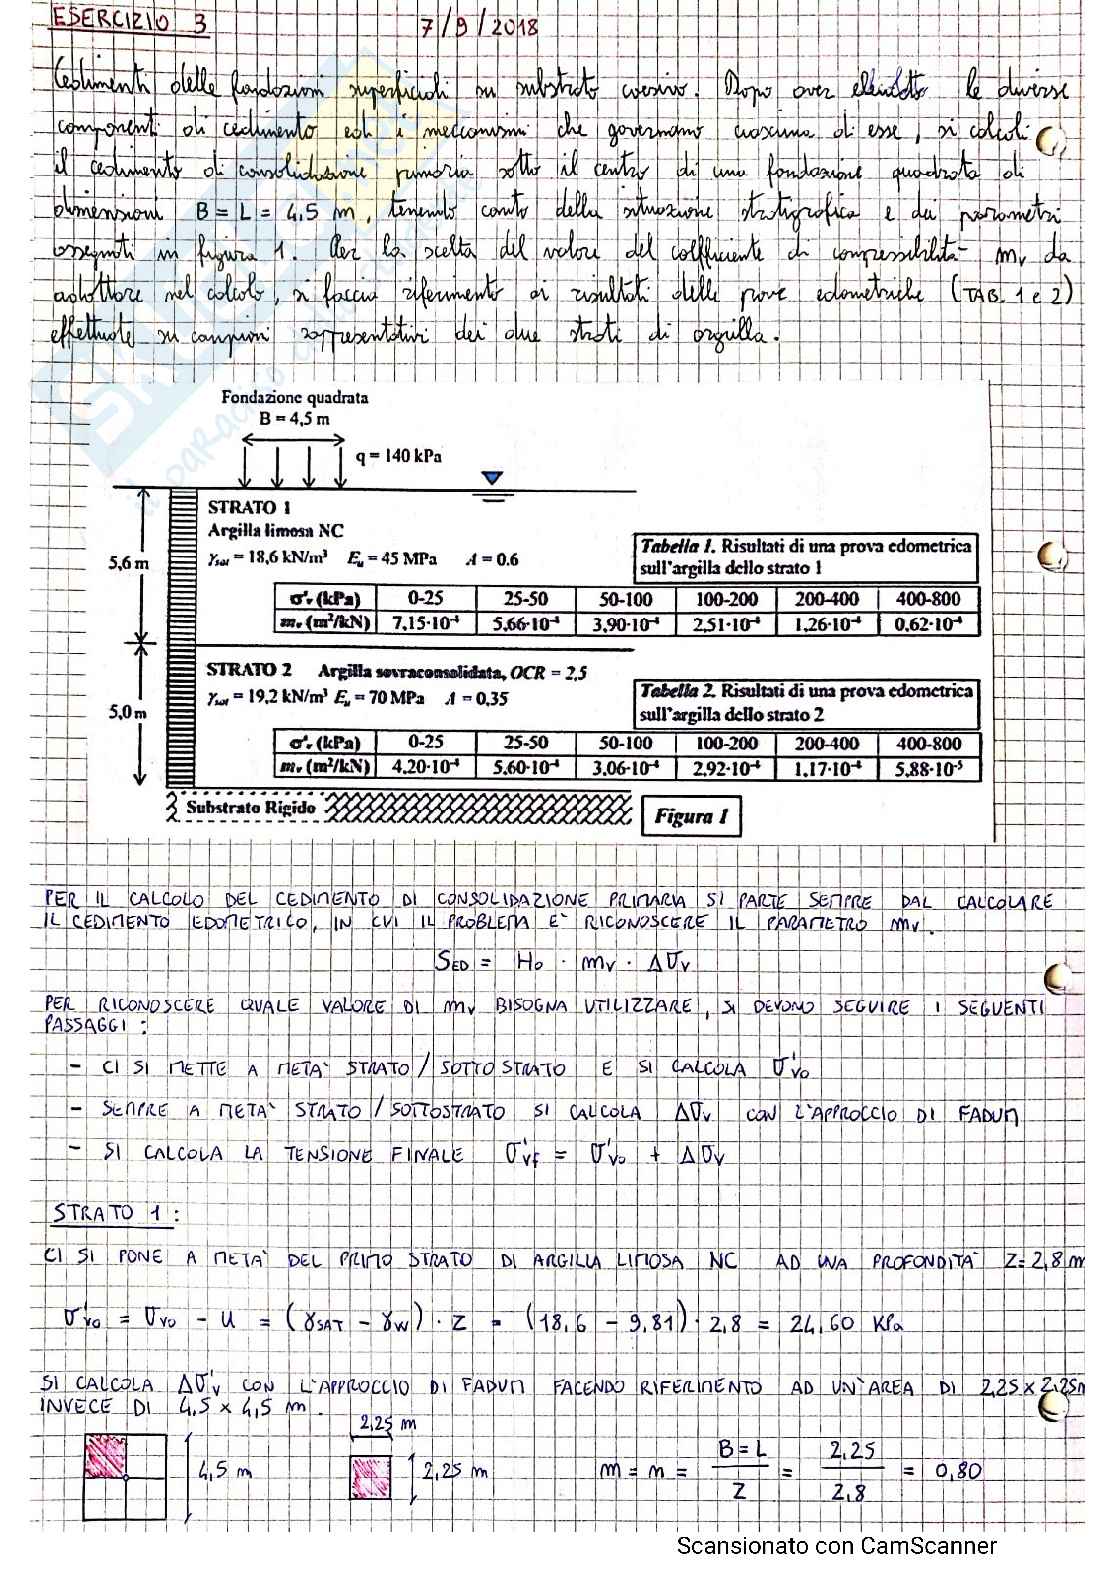 ESERCIZIO 3 7/9/2018
Cedimenti delle fondazioni superficiali su substrato coesivo. Dopo aver elencato le diverse
componenti di cedimento ed i meccanismi che governano ciascuna di esse, si calcoli
il cedimento di consolidazione primaria sotto il centro di una fondazione quadrata di
dimensioni B = L = 4,5 m, tenendo conto della situazione stratigrafica e dei parametri
assegnati in figura 1. Per la scelta del valore del coefficiente di compressibilità mv da
adottare nel calcolo, si faccia riferimento ai risultati delle prove edometriche (TAB. 1 e 2)
effettuate su campioni rappresentativi dei due strati di argilla.
Fondazione quadrata
B = 4,5 m
q = 140 kPa
STRATO 1
Argilla limosa NC
γsat = 18,6 kN/m³ Eu = 45 MPa A = 0.6
5,6 m
Tabella 1. Risultati di una prova edometrica
sull'argilla dello strato 1
σ'v (kPa) 0-25 25-50 50-100 100-200 200-400 400-800
mv (m²/kN) 7,15·10⁻⁴ 5,66·10⁻⁴ 3,90·10⁻⁴ 2,51·10⁻⁴ 1,26·10⁻⁴ 0,62·10⁻⁴
STRATO 2 Argilla sovraconsolidata, OCR = 2,5
γsat = 19,2 kN/m³ Eu = 70 MPa A = 0,35
5,0 m
Tabella 2. Risultati di una prova edometrica
sull'argilla dello strato 2
σ'v (kPa) 0-25 25-50 50-100 100-200 200-400 400-800
mv (m²/kN) 4,20·10⁻⁴ 5,60·10⁻⁴ 3,06·10⁻⁴ 2,92·10⁻⁴ 1,17·10⁻⁴ 5,88·10⁻⁵
Substrato Rigido
Figura 1
PER IL CALCOLO DEL CEDIMENTO DI CONSOLIDAZIONE PRIMARIA SI PARTE SEMPRE DAL CALCOLARE
IL CEDIMENTO EDOMETRICO, IN CUI IL PROBLEMA E' RICONOSCERE IL PARAMETRO mv.
SED = H0 · mv · Δσv
PER RICONOSCERE QUALE VALORE DI mv BISOGNA UTILIZZARE, SI DEVONO SEGUIRE I SEGUENTI
PASSAGGI:
- CI SI METTE A META' STRATO / SOTTOSTRATO E SI CALCOLA σ'v0
- SEMPRE A META' STRATO / SOTTOSTRATO SI CALCOLA Δσv CON L'APPROCCIO DI FADUM
- SI CALCOLA LA TENSIONE FINALE σ'vf = σ'v0 + Δσv
STRATO 1:
CI SI PONE A META' DEL PRIMO STRATO DI ARGILLA LIMOSA NC AD UNA PROFONDITA' Z=2,8 m
σ'v0 = σv0 - u = (γSAT - γW) · Z = (18,6 - 9,81) · 2,8 = 24,60 KPa
SI CALCOLA Δσ'v CON L'APPROCCIO DI FADUM FACENDO RIFERIMENTO AD UN'AREA DI 2,25 x 2,25m
INVECE DI 4,5 x 4,5 m.
4,5 m
2,25 m
2,25 m
m = n = B=L / Z = 2,25 / 2,8 = 0,80
Scansionato con CamScanner